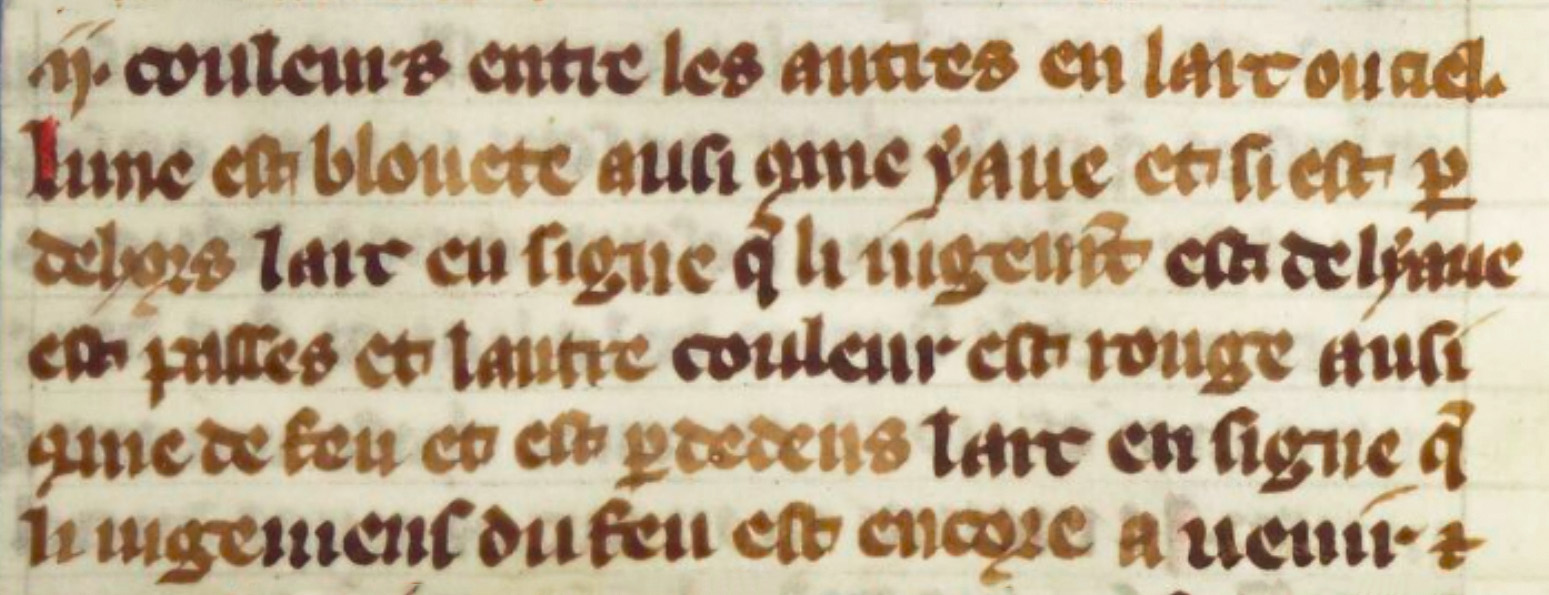 .ij. couleurs entre les autres en larc ou ciel.
Lune est blouete ausi ꝯme yaue et si est ꝑ
dehors larc en signe q̃ li iugem̃t est de lyaue
est passes et lautre couleur est rouge ausi
ꝯme de feu et est ꝑ dedens larc en signe q̃
li iugemens du feu est encore a uenir ⁊